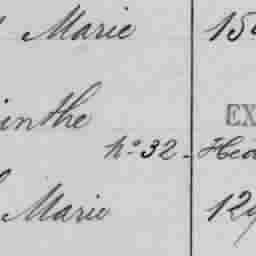 Marie 15
inthe EX
no 32 - Heo
Marie 129